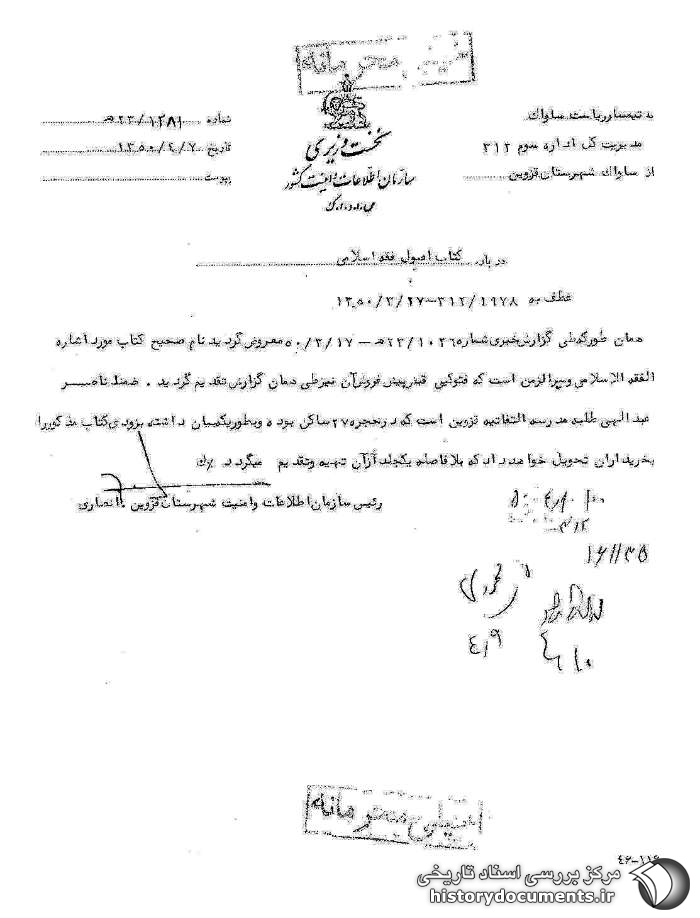 خیلی محرمانه
به تیمسار ریاست ساواک
مدیریت کل اداره سوم ۳۱۲
از ساواک شهرستان قزوین
نخست وزیری
سازمان اطلاعات و امنیت کشور
س.ا.و.ا.ک
شماره ۱۲۸۱/۲۳ه
تاریخ ۱۳۵۰/۴/۷
پیوست
درباره کتاب اصول فقه اسلامی
عطف به ۳۱۲/۱۹۷۸-۱۳۵۰/۳/۲۷
همان طورکه طی گزارش خبری شماره ۲۳/۱۰۳۶ه - ۵۰/۳/۱۷ معروض گردید نام صحیح کتاب مورد اشاره
الفقه الاسلامی و سیر الزمن است که فتوکپی قبض پیش فروش آن نیز طی همان گزارش تقدیم گردید . ضمنا ناصر
عبدالهی طلبه مدرسه التفاتیه قزوین است که در حجره ۲۷ ساکن بوده و بطوریکه بیان داشته بزودی کتاب مذکور را
بخریداران تحویل خواهد داد که بلافاصله یکجلد از آن تهیه و تقدیم میگردد
رئیس سازمان اطلاعات و امنیت شهرستان قزوین . انصاری
۳۱۲
۱۶۱۱۳۵
۴/۹
۴/۱۰
خیلی محرمانه
۴۶-۱۱۶
مرکز بررسی اسناد تاریخی
historydocuments.ir